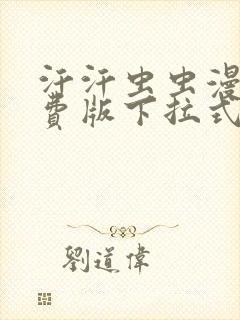 汗汗虫虫漫
费版下拉式
劉道偉